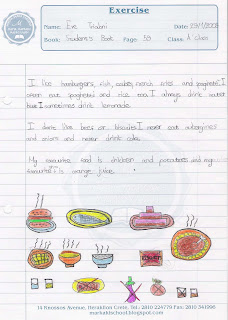 Exercise
Name: Eve
Date: 29/1/2008
Book: Student's Book Page: 39 Class: A' Class
I like hamburgers, fish, cookies, french fries and spaghetti. I
often eat spaghetti and rice too. I always drink water
but I sometimes drink lemonade.
I don't like bees or biscuits. I never eat aubergines
and onions and never drink coke.
My favourite food is chicken and potatoes and my
favourite is orange juice.
14 Recesses Avenue, Heraklion Crete, Tel.: 2810 224779 Fax: 2810 341996
markakischool.blogspot.com